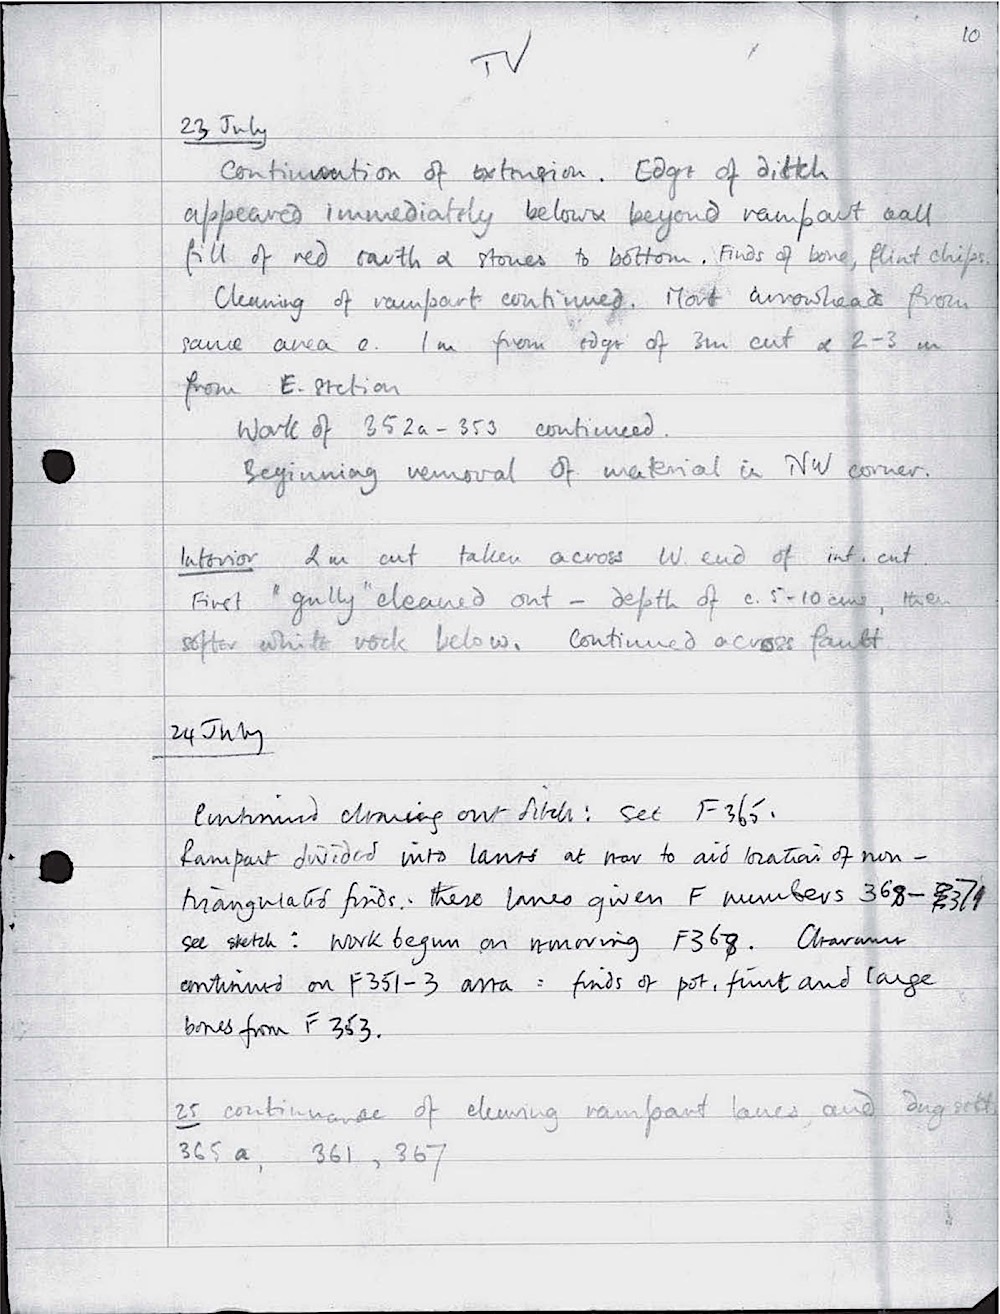 10
TV
23 July
Continuation of extension. Edge of ditch
appeared immediately below & beyond rampart wall
fill of red earth & stones to bottom. Finds of bone, flint chips.
Cleaning of rampart continued. Most arrowheads from
same area c. 1m from edge of 3m cut & 2-3 m
from E. section
Work of 352a - 353 continued.
Beginning removal of material in NW corner.
Interior 2m cut taken across W. end of int. cut
First "gully" cleaned out - depth of c. 5-10 cms, then
softer white rock below. Continued across fault
24 July
Continued cleaning out ditch: see F365.
Rampart divided into lanes at now to aid location of non-
triangulated finds. These lanes given F numbers 368-371
see sketch: work begun on removing F368. Clearance
continued on F351-3 area: finds of pot, flint and large
bones from F353.
25 continuance of cleaning rampart lanes, and dug
365a, 361, 367